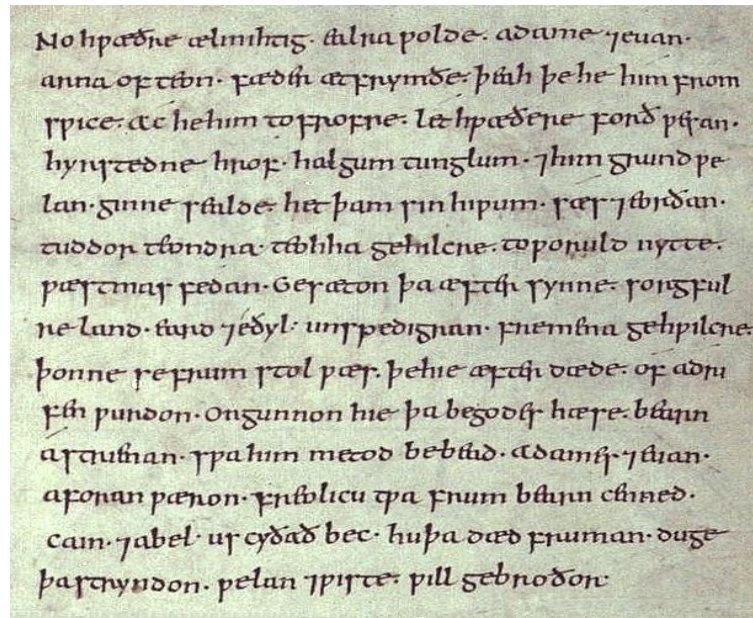 No hƿæðre ælmihtig· ealra ƿolde· adame ⁊ euan·
arna of teon· fæder æt frymðe· þeah þe he him from
sƿice· ac he him to frofre· let hƿæðere forð ƿesan·
hyrstedne hrof· halgum tunglum· ⁊ him grund ƿe
lan· ginne sealde· het þam sin hiƿum· sæs ⁊ eorðan·
tuddor teondra· teohha gehilcne· to ƿoruld nytte·
ƿæstmas fedan· Gesæton þa æfter synne· sorgful
re land· eard ⁊ eðyl· unspedigran· fremena gehƿilcre·
þonne se frum stol ƿæs· þe hie æfter dæde· of adri
fen ƿurdon· Ongunnon hie þa be godes hæse· bearn
astrienan· sƿa him metod bebead· adames ⁊ euan·
aforan ƿæron· freolicu tƿa frum bearn cenned·
cain· ⁊ abel· us cyðað bec· hu þa dæd fruman· duge
þa stryndon· ƿelan ⁊ ƿiste· ƿill gebroðor·